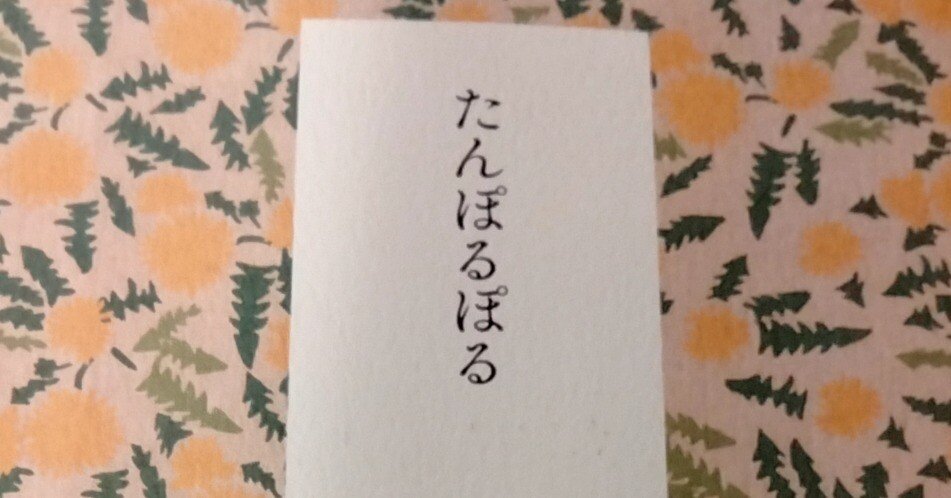 たんぽるぽる